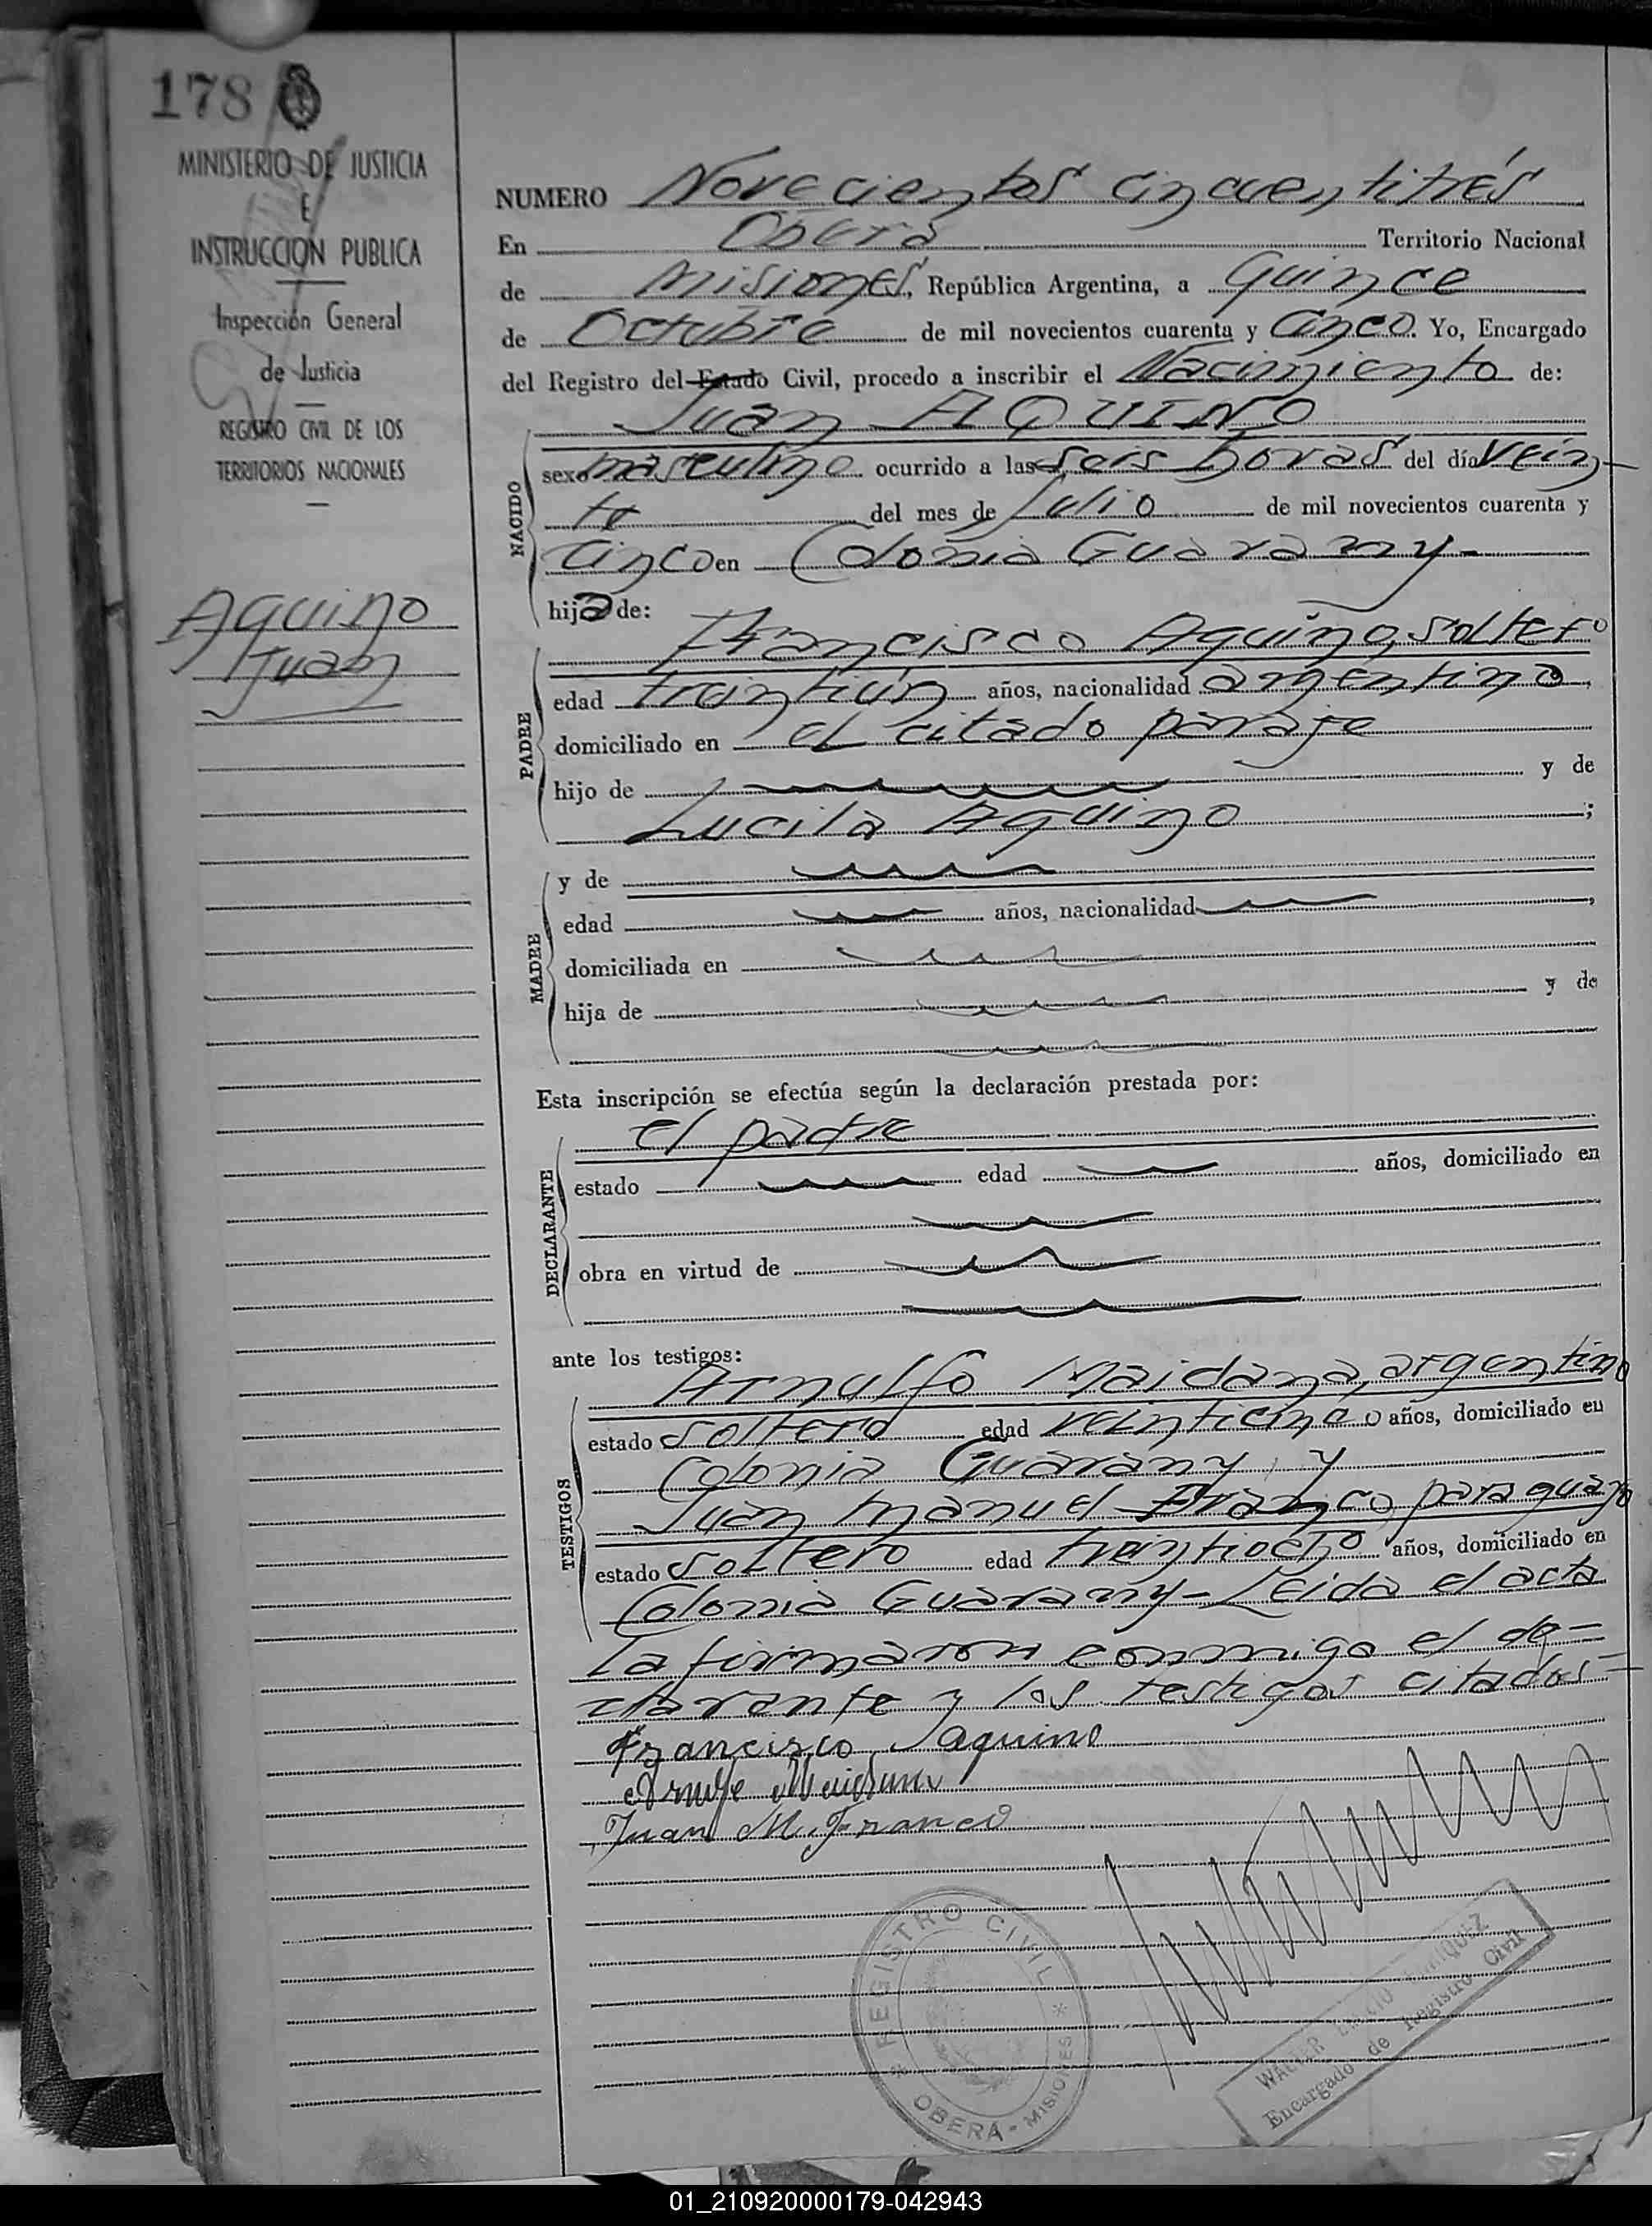 178
MINISTERIO DE JUSTICIA
E
INSTRUCCION PUBLICA
Inspección General
de Justicia
REGISTRO CIVIL DE LOS
TERRITORIOS NACIONALES
Aquino
Juan
NUMERO Novecientos cincuentitrés
En Oberá Territorio Nacional
de Misiones, República Argentina, a Quince
de Octubre de mil novecientos cuarenta y Cinco. Yo, Encargado
del Registro del Estado Civil, procedo a inscribir el Nacimiento de:
Juan AQUINO
NACIDO
sexo masculino ocurrido a las seis horas del día vein-
te del mes de Julio de mil novecientos cuarenta y
Cinco en Colonia Guarany-
hijo de:
PADRE
Francisco Aquino, soltero
edad treintiún años, nacionalidad argentino,
domiciliado en el citado paraje
hijo de y de
Lucila Aquino ;
MADRE
y de
edad años, nacionalidad ,
domiciliada en
hija de y de
Esta inscripción se efectúa según la declaración prestada por:
DECLARANTE
el padre
estado edad años, domiciliado en
obra en virtud de
ante los testigos:
TESTIGOS
Arnulfo Maidana, argentino
estado soltero edad veinticinco años, domiciliado en
Colonia Guarany, y
Juan Manuel Franco, paraguayo
estado soltero edad treintiocho años, domiciliado en
Colonia Guarany- Leida el acta
la firmaron conmigo el de-
clarante y los testigos citados-
Francisco Aquino
Arnulfo Maidana
Juan M. Franco
REGISTRO CIVIL
OBERÁ - MISIONES
WALTER
Encargado de Registro Civil
01_210920000179-042943